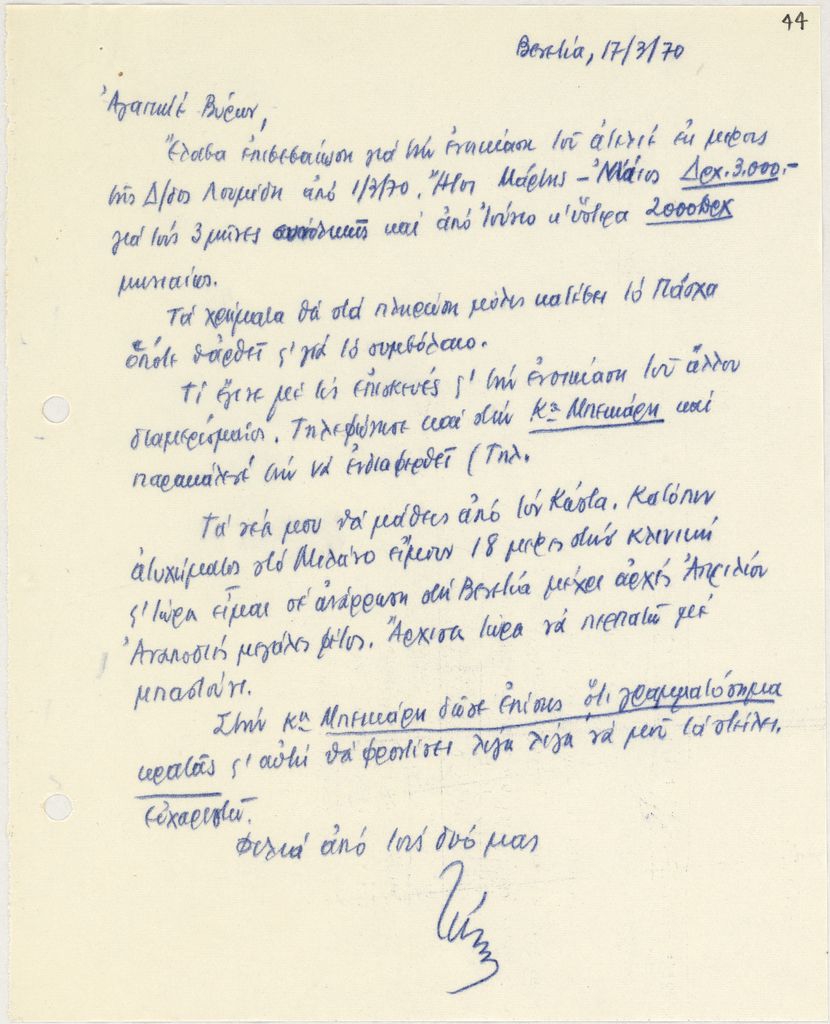 44
Βενετία, 17/3/70
Ἀγαπητέ Βύρων,
Ἔλαβα ἐπιβεβαίωση γιά τήν ἐνοικίαση τοῦ ἀτελιέ ἐκ μέρους
τῆς Δ/δος Λουμίδη ἀπό 1/3/70. Ἤτοι Μάρτης – Μάϊος Δρχ. 3.000.-
γιά τούς 3 μῆνες καί ἀπό Ἰούνιο κ' ὕστερα 2000 Δρχ
μηνιαίως.
Τά χρήματα θά στά πληρώση μόλις κατέβει τό Πάσχα
ὁπότε θἄρθεῖ ς' γιά τό συμβόλαιο.
Τί ἔγινε μέ τίς ἐπισκευές ς' τήν ἐνοικίαση τοῦ ἄλλου
διαμερίσματος. Τηλεφώνησε καί στήν Κα Μπεκιάρη καί
παρακάλεσέ τήν νά ἐνδιαφερθεῖ (Τηλ.
Τά νέα μου θά μάθεις ἀπό τόν Κώστα. Κατόπιν
ἀτυχήματος στό Μιλάνο εἴμουν 18 μέρες στήν κλινική
ς' τώρα εἶμαι σέ ἀνάρρωση στή Βενετία μέχρι ἀρχές Ἀπριλίου
Ἀναποδιές μεγάλες φέτος. Ἄρχισα τώρα νά περπατῶ μέ
μπαστούνι.
Στήν κα Μπεκιάρη δῶσε ἐπίσης ὅτι γραμματόσημα
κρατᾶς ς' αὐτή θά φροντίσει λίγα λίγα νά μοῦ τά στείλει.
Εὐχαριστῶ.
Φιλικά ἀπό τούς δυό μας